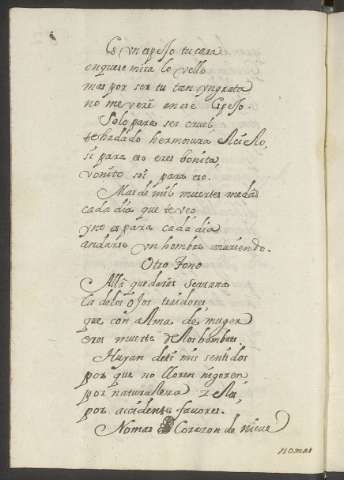 Es un espesso tu cara
en que se mira lo vello
mas por ser tu tan yngrata
no me vere en ese espesso.
Solo para ser cruel
te ha dado hermosura el cielo,
si para eso eres bonita,
vonito soi para eso.
Mas de mil muertes me das
cada dia que te veo
y no es para cada dia
andarse un hombre muriendo.
Otro Tono
Alla quedaros serrana
la de los ojos traidores
que con alma de muger
eres muerte de los hombres.
Huyan de ti mis sentidos
por que no lloren ni
por naturalleza
por accidente favores.
Nomas Corazon de nieve
nomas